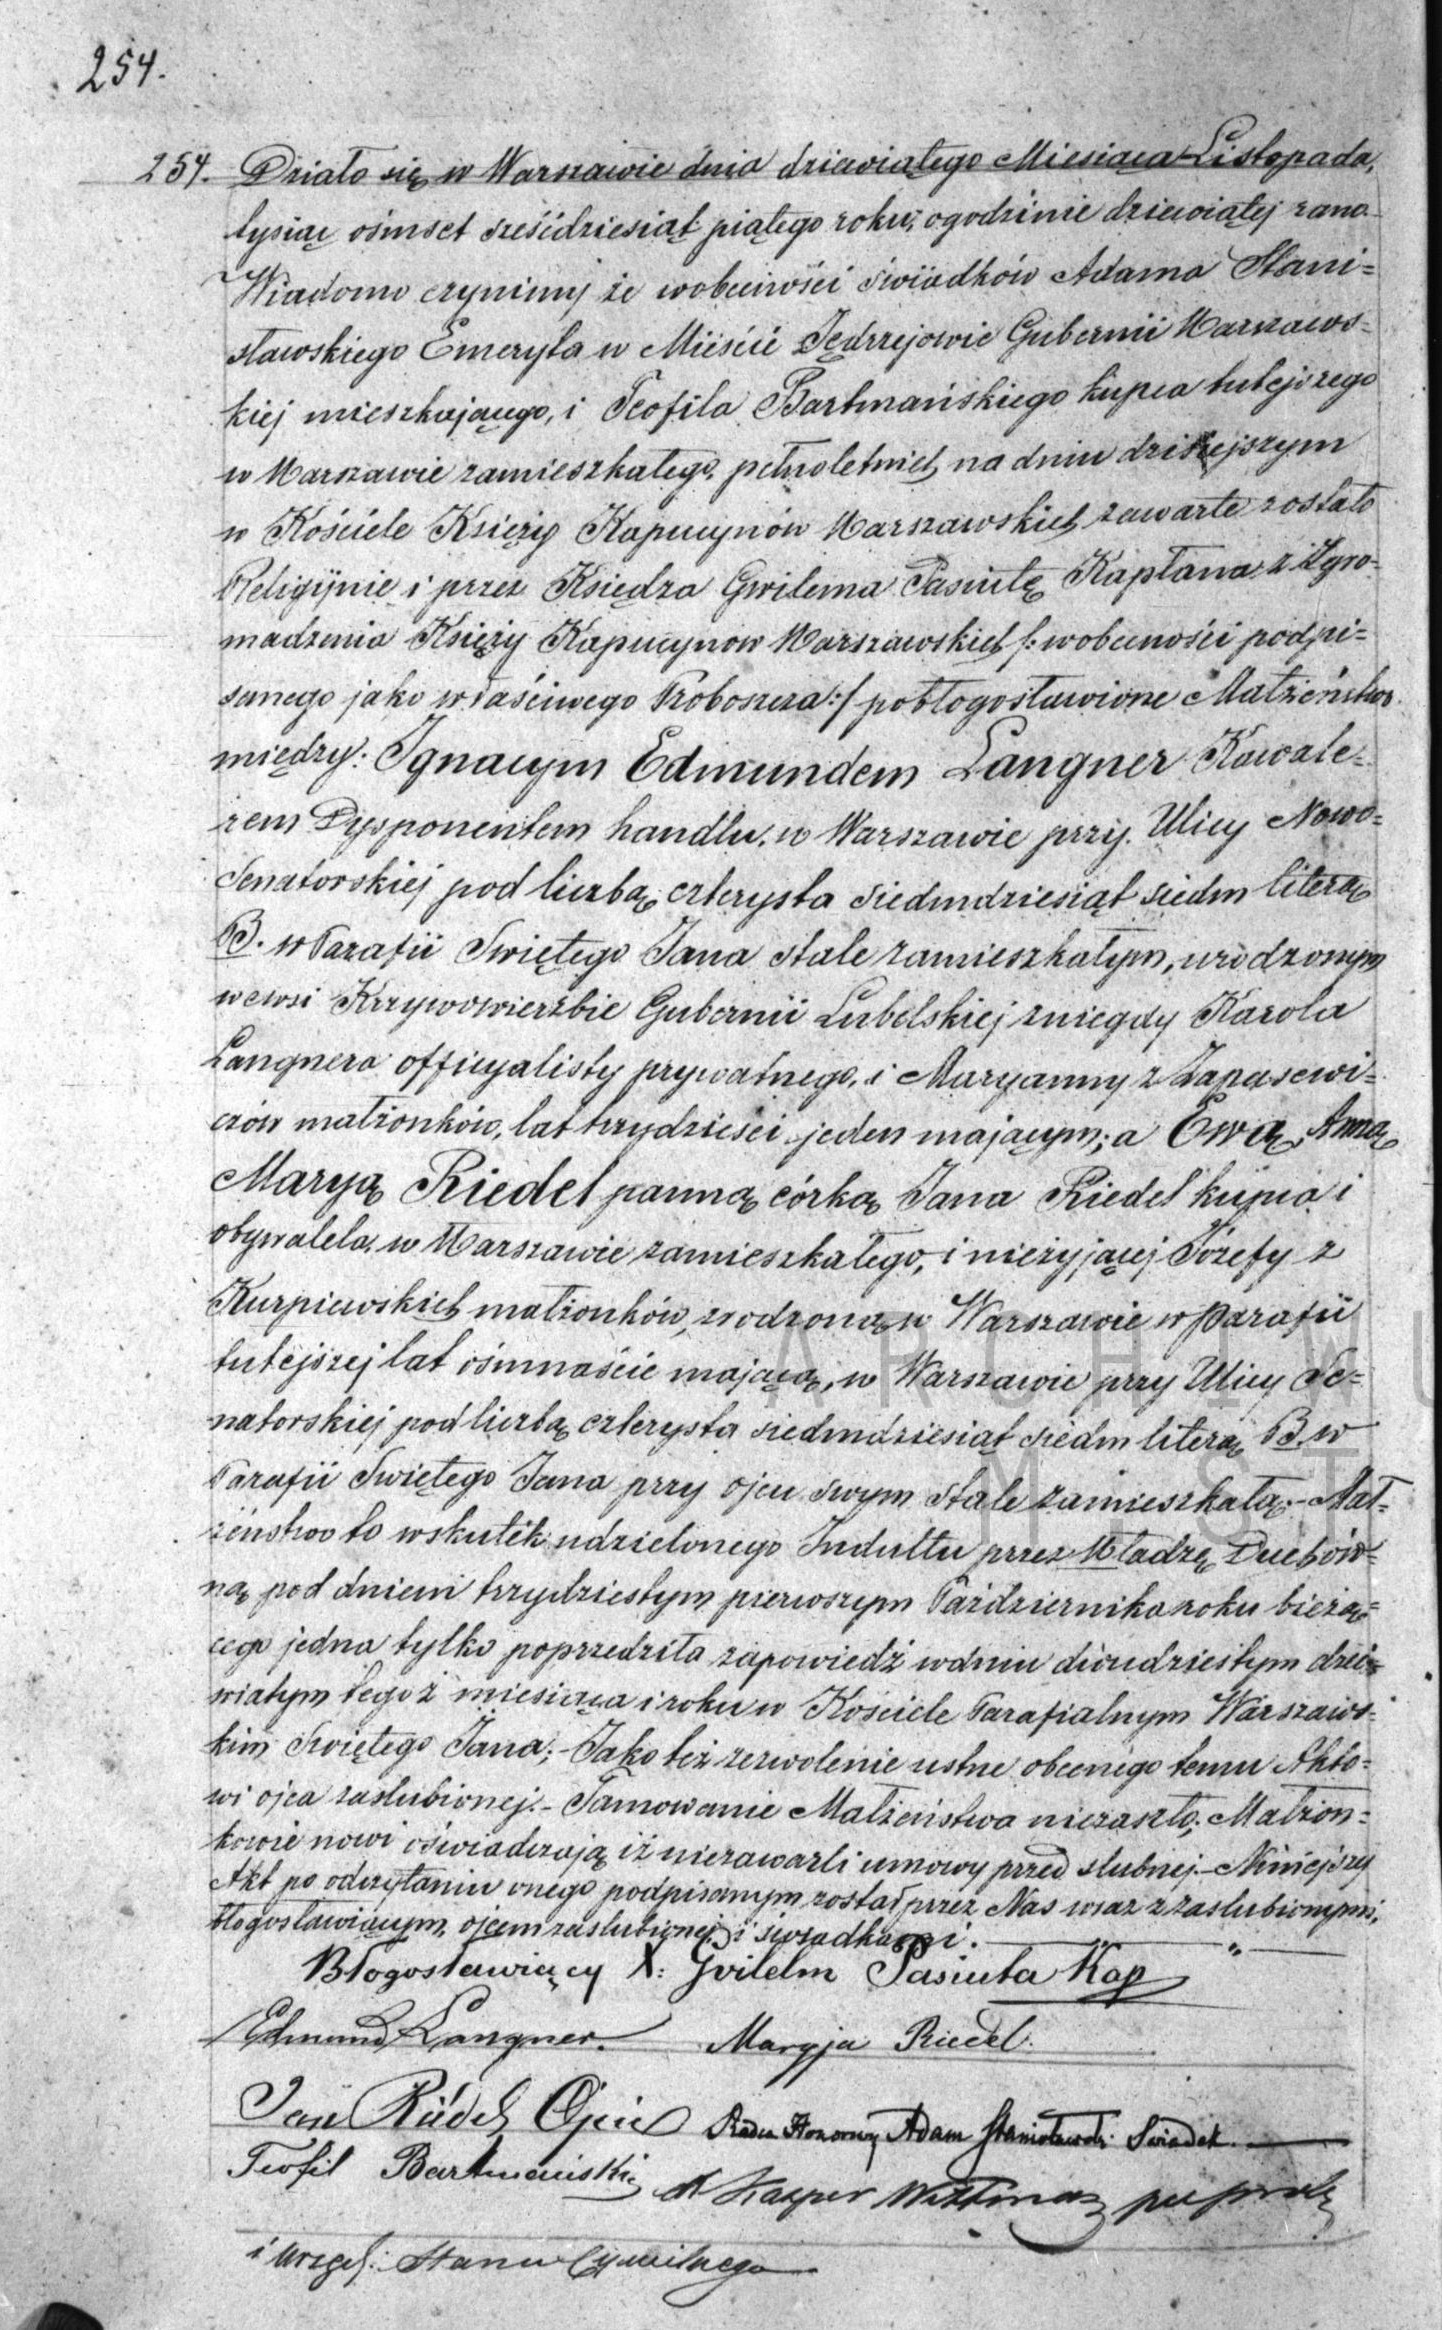 254.
254. Działo się w Warszawie dnia dziewiątego Miesiąca Listopada,
tysiąc ośmset sześćdziesiąt piątego roku, o godzinie dziewiątej rano
Wiadomo czynimy że w obecności świadków Adama Stani=
sławskiego Emeryta w Mieście Jędrzejowie Gubernii Warszaws=
kiej mieszkającego, i Teofila Bartmańskiego kupca tutejszego
w Warszawie zamieszkałego, pełnoletnich, na dniu dzisiejszym
w Kościele Księży Kapucynów Warszawskich zawarte zostało
Religijnie i przez Księdza Gwilema Pasiutę Kapłana z Zgro=
madzenia Księży Kapucynow Warszawskich /: w obecności podpi=
sanego jako właściwego Proboszcza :/ pobłogosławione Małżeństwo
między: Ignacym Edmundem Langner Kawale=
rem Dysponentem handlu, w Warszawie przy Ulicy Nowo=
Senatorskiej pod liczbą czterysta siedmdziesiąt siedm literą
B. w Parafii Świętego Jana stale zamieszkałym, urodzonym
we wsi Krzywowierzbie Gubernii Lubelskiej z niegdy Karola
Langnera officyalisty prywatnego, i Maryanny z Zapasewi=
czów małżonków, lat trzydzieści jeden mającym; a Ewą, Anną
Maryą Riedel panną córką Jana Riedel kupca i
obywatela, w Warszawie zamieszkałego, i nieżyjącej Józefy z
Kurpiewskich małżonków, zrodzoną w Warszawie w parafii
tutejszej lat ośmnaście mającą, w Warszawie przy Ulicy Se=
natorskiej pod liczbą czterysta siedmdziesiąt siedm literą B. w
Parafii Świętego Jana przy ojcu swym stale zamieszkałą.- Mał=
żeństwo to wskutek udzielonego Indultu przez Władzę Duchów=
ną pod dniem trzydziestym pierwszym Października roku bieżą=
cego jedna tylko poprzedziła zapowiedź w dniu dwudziestym dzie=
wiątym tegoż miesiąca i roku w Kościele Parafialnym Warszaws=
kim Świętego Jana;- Jako też zezwolenie ustne obecnego temu Akto=
wi ojca zaślubionej.- Tamowanie Małżeństwa niezaszło; Małżon=
kowie nowi oświadczają iż niezawarli umowy przed ślubnej.- Niniejszy
Akt po odczytaniu onego podpisanym został przez Nas wraz z zaślubionymi,
błogosławiącym, ojcem zaślubionej i świadkami.
Błogosławiący X: Gvilelm Pasiuta Kap
Edmund Langner. Maryja Riedel.
Jan Riedel Ojciec Radca Honorowy Adam Stanisławski Świadek
Teofil Bartmański
i Urzęd: Stanu Cywilnego
ARCHIWU
M. ST